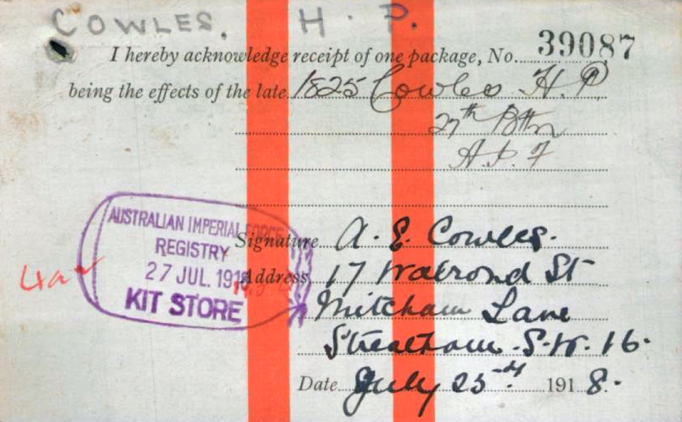 COWLES. H. P.
I hereby acknowledge receipt of one package, No. 39087
being the effects of the late 1825 Cowles H.P
27th Btn
A.I.F
AUSTRALIAN IMPERIAL FORCE
REGISTRY
27 JUL. 1918
KIT STORE
Signature A. E. Cowles.
Address 17 Walrond St
Mitcham Lane
Streatham. S.W. 16.
Date July 25th 1918.